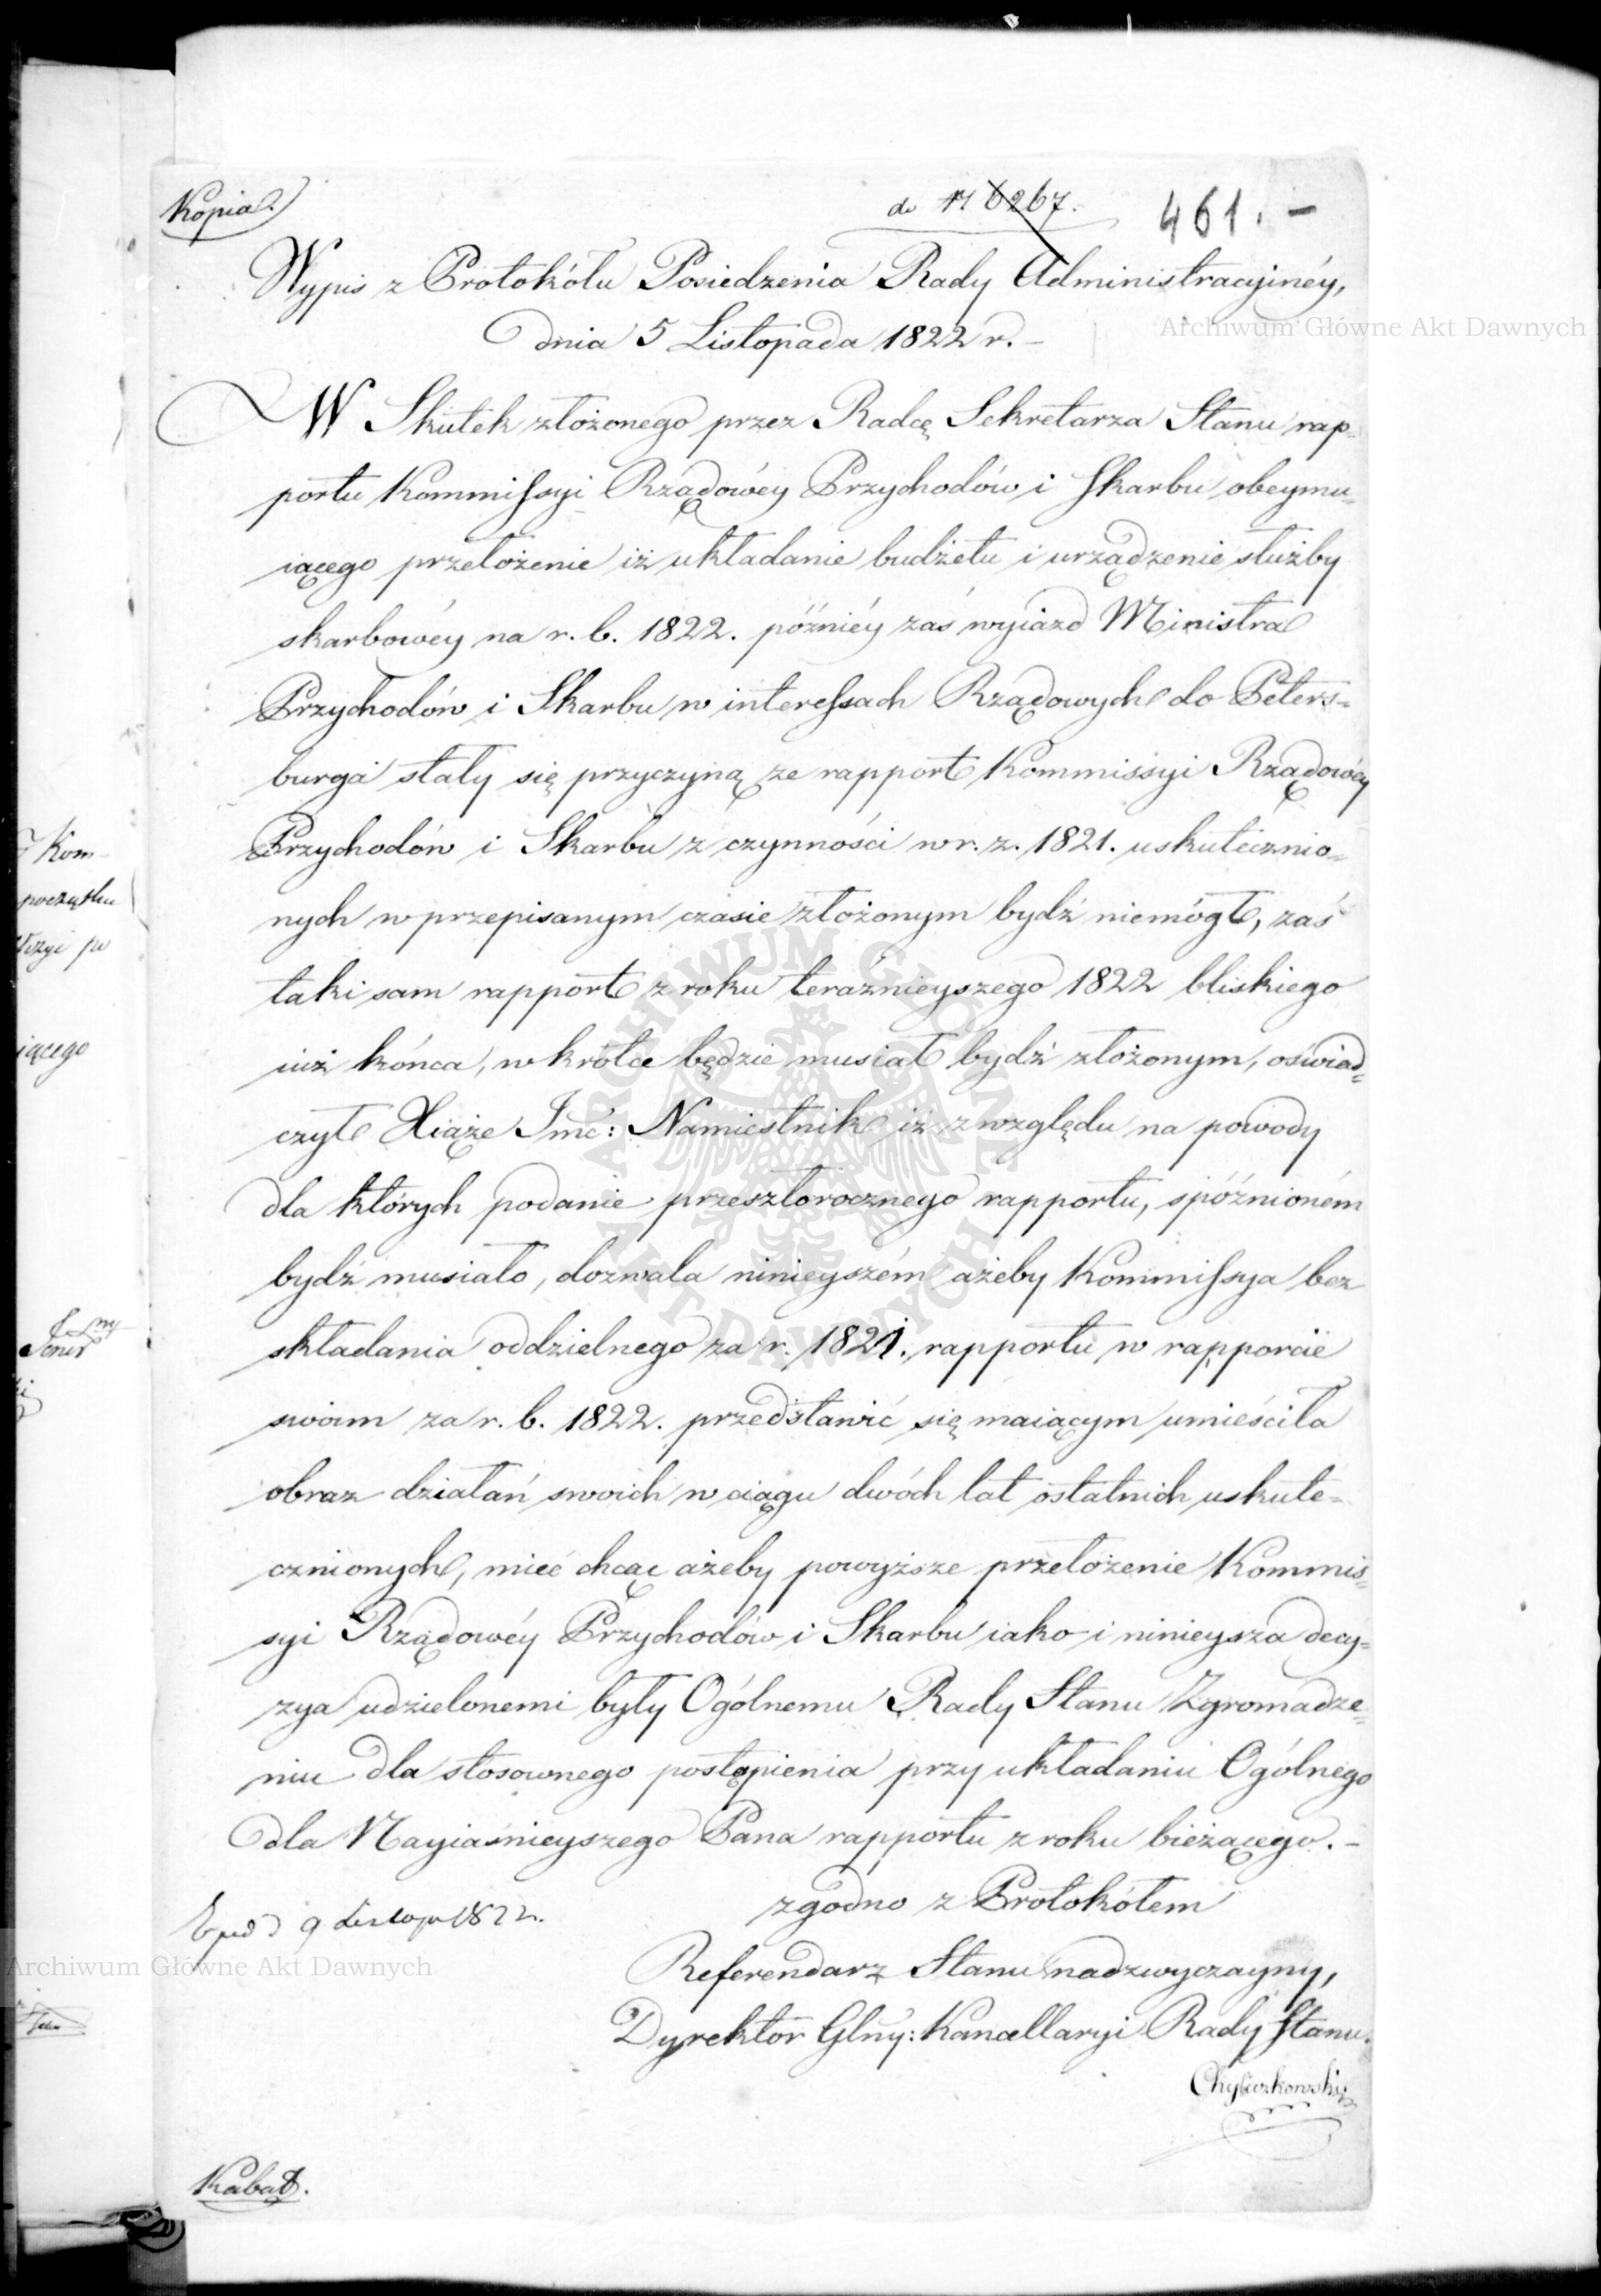 Kopia.
do N 6267.
461. -
Archiwum Główne Akt Dawnych
Wypis z Protokółu Posiedzenia Rady Administracyinéy,
dnia 5 Listopada 1822 r. -
W Skutek złożonego przez Radcę Sekretarza Stanu rap-
portu Kommissyi Rządowéy Przychodów i Skarbu obeymu-
iącego przełożenie iż układanie budżetu i urządzenie służby
skarbowéy na r. b. 1822. późniéy zaś wyiazd Ministra
Przychodów i Skarbu w interessach Rządowych do Peters-
burga stały się przyczyną że rapport Kommissyi Rządowéy
Przychodów i Skarbu z czynności w r. z. 1821. uskutecznio-
nych w przepisanym czasie złożonym bydź niemógł, zaś
taki sam rapport z roku teraźnieyszego 1822 bliskiego
iuż końca, w krótce będzie musiał bydź złożonym, oświad-
czył Xiąże Jmć: Namiestnik iż z względu na powody
dla których podanie przeszłorocznego rapportu, spóźnioném
bydź musiało, dozwala ninieyszém ażeby Kommissya bez
składania oddzielnego za r. 1821. rapportu w rapporcie
swoim za r. b. 1822. przedstawić się maiącym umieściła
obraz działań swoich w ciągu dwóch lat ostatnich uskute-
cznionych, mieć chcąc ażeby powyższe przełożenie Kommis-
syi Rządowéy Przychodów i Skarbu iako i ninieysza decy-
zya udzielonemi były Ogólnemu Rady Stanu Zgromadze-
niu dla stosownego postąpienia przy układaniu Ogólnego
dla Nayiaśnieyszego Pana rapportu z roku bieżącego. -
zgodno z Protokółem
9 Listop 1822.
Referendarz Stanu nadzwyczayny,
Archiwum Główne Akt Dawnych
Dyrektor Głny: Kancellaryi Rady Stanu.
Chyliczkowski
Kabat.
Kom-
początku
iącego
ARCHIWUM GŁÓWNE AKT DAWNYCH